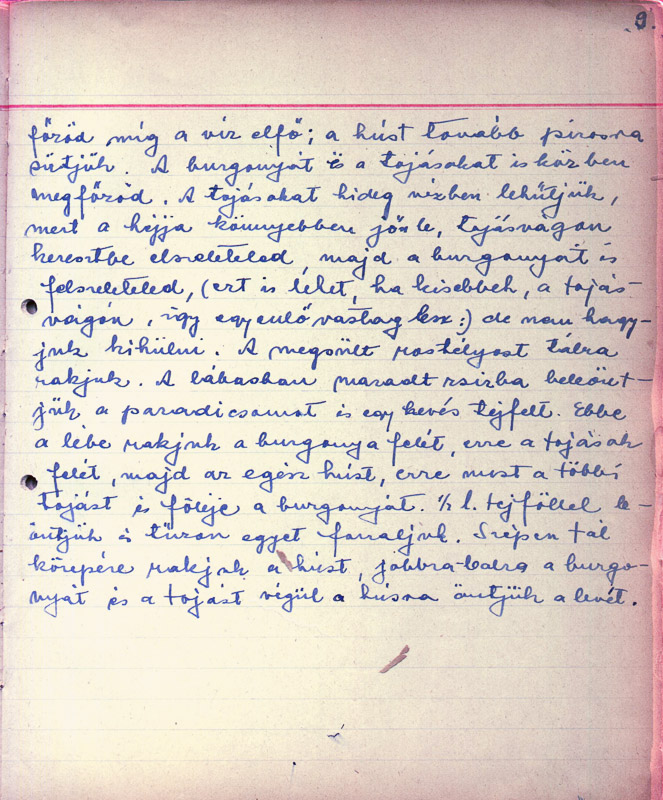 9.
főzöd míg a víz elfő; a húst tovább pirosra
sütjük. A burgonyát és a tojásokat is közben
megfőzöd. A tojásokat hideg vízben lehűtjük,
mert a héjja könnyebben jön le, tojásvágón
keresztbe elszeleteled, majd a burgonyát is
felszeleteled, (ezt is lehet, ha kisebbek, a tojás-
vágón, így egyenlő vastag lesz:) de nem hagy-
juk kihűlni. A megsült rostélyost tálra
rakjuk. A lábasban maradt zsirba beleönt-
jük a paradicsomot is egy kevés tejfelt. Ebbe
a lébe rakjuk a burgonya felét, erre a tojások
felét, majd az egész húst, erre most a többi
tojást és föléje a burgonyát. 1/2 l. tejföllel le-
öntjük és tűzön egyet forraljuk. Szépen tál
közepére rakjuk a húst, jobbra-balra a burgo-
nyát és a tojást végül a húsra öntjük a levét.